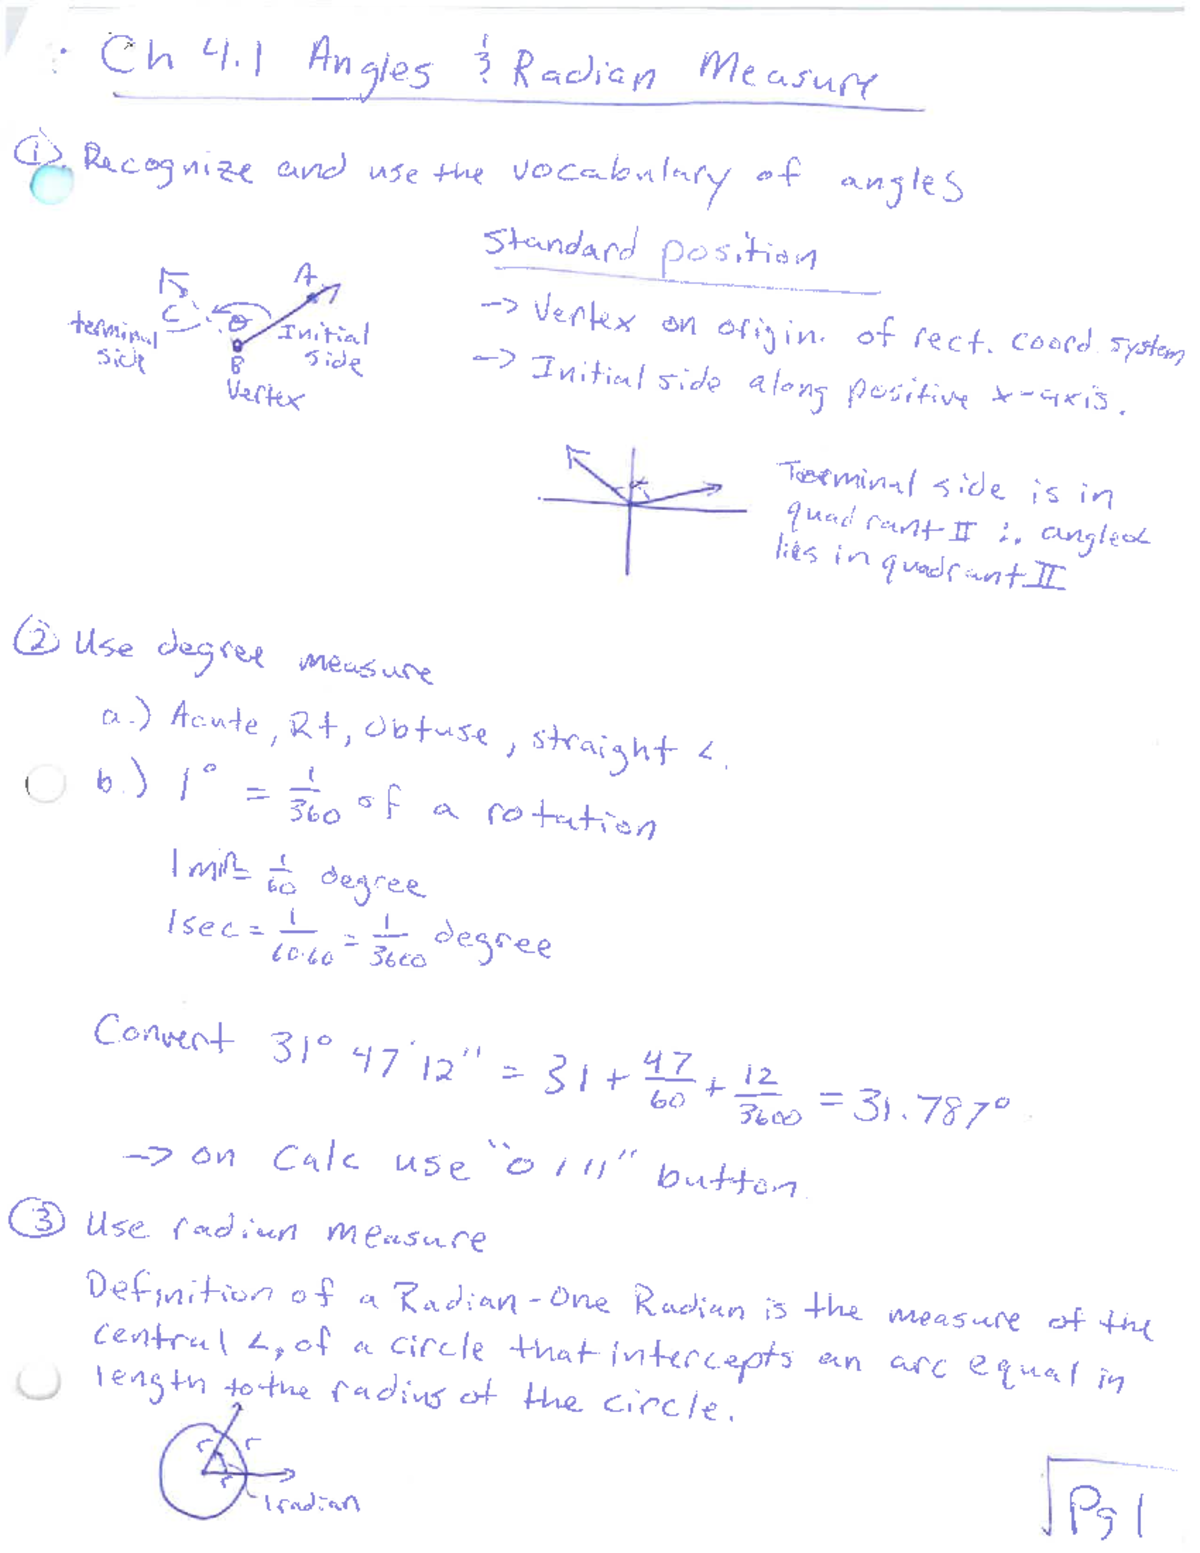 Ch 4.1 Angles & Radian Measure
① Recognize and use the vocabulary of angles
Standard position
→ Vertex on origin. of rect. coord system
→ Initial side along positive x-axis.
A
C
θ
terminal side
Initial side
B
Vertex
α
Terminal side is in
quadrant II ∴ angle α
lies in quadrant II
② Use degree measure
a.) Acute, Rt, Obtuse, straight ∠.
b.) 1° = 1/360 of a rotation
1 min = 1/60 degree
1 sec = 1/60·60 = 1/3600 degree
Convert 31° 47' 12" = 31 + 47/60 + 12/3600 = 31.787°
→ on Calc use "o ' ''" button
③ Use radian measure
Definition of a Radian - One Radian is the measure of the
central ∠, of a circle that intercepts an arc equal in
length to the radius of the circle.
r r
r
1 radian
Pg 1